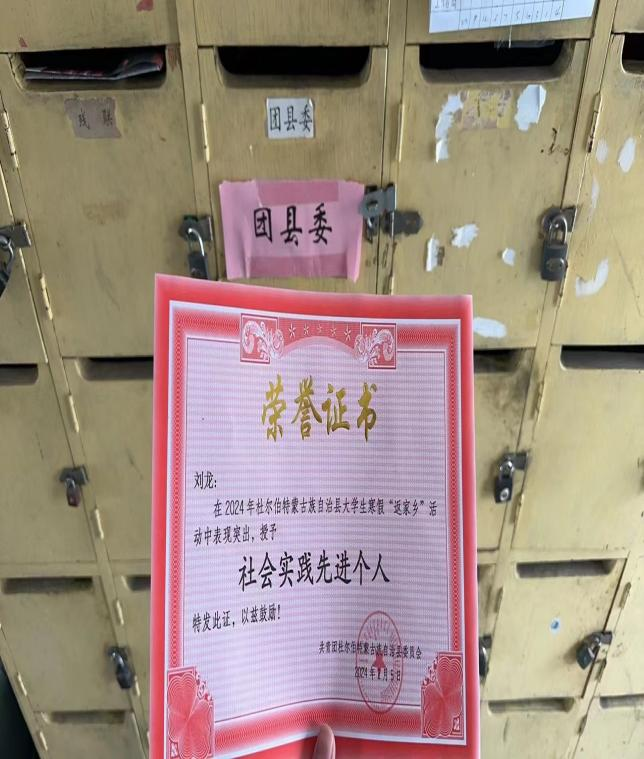 残联
团县委
团县委
荣誉证书
刘龙:
在2024年杜尔伯特蒙古族自治县大学生寒假“返家乡”活
动中表现突出，授予
社会实践先进个人
特发此证，以兹鼓励！
共青团杜尔伯特蒙古族自治县委员会
2024年2月5日